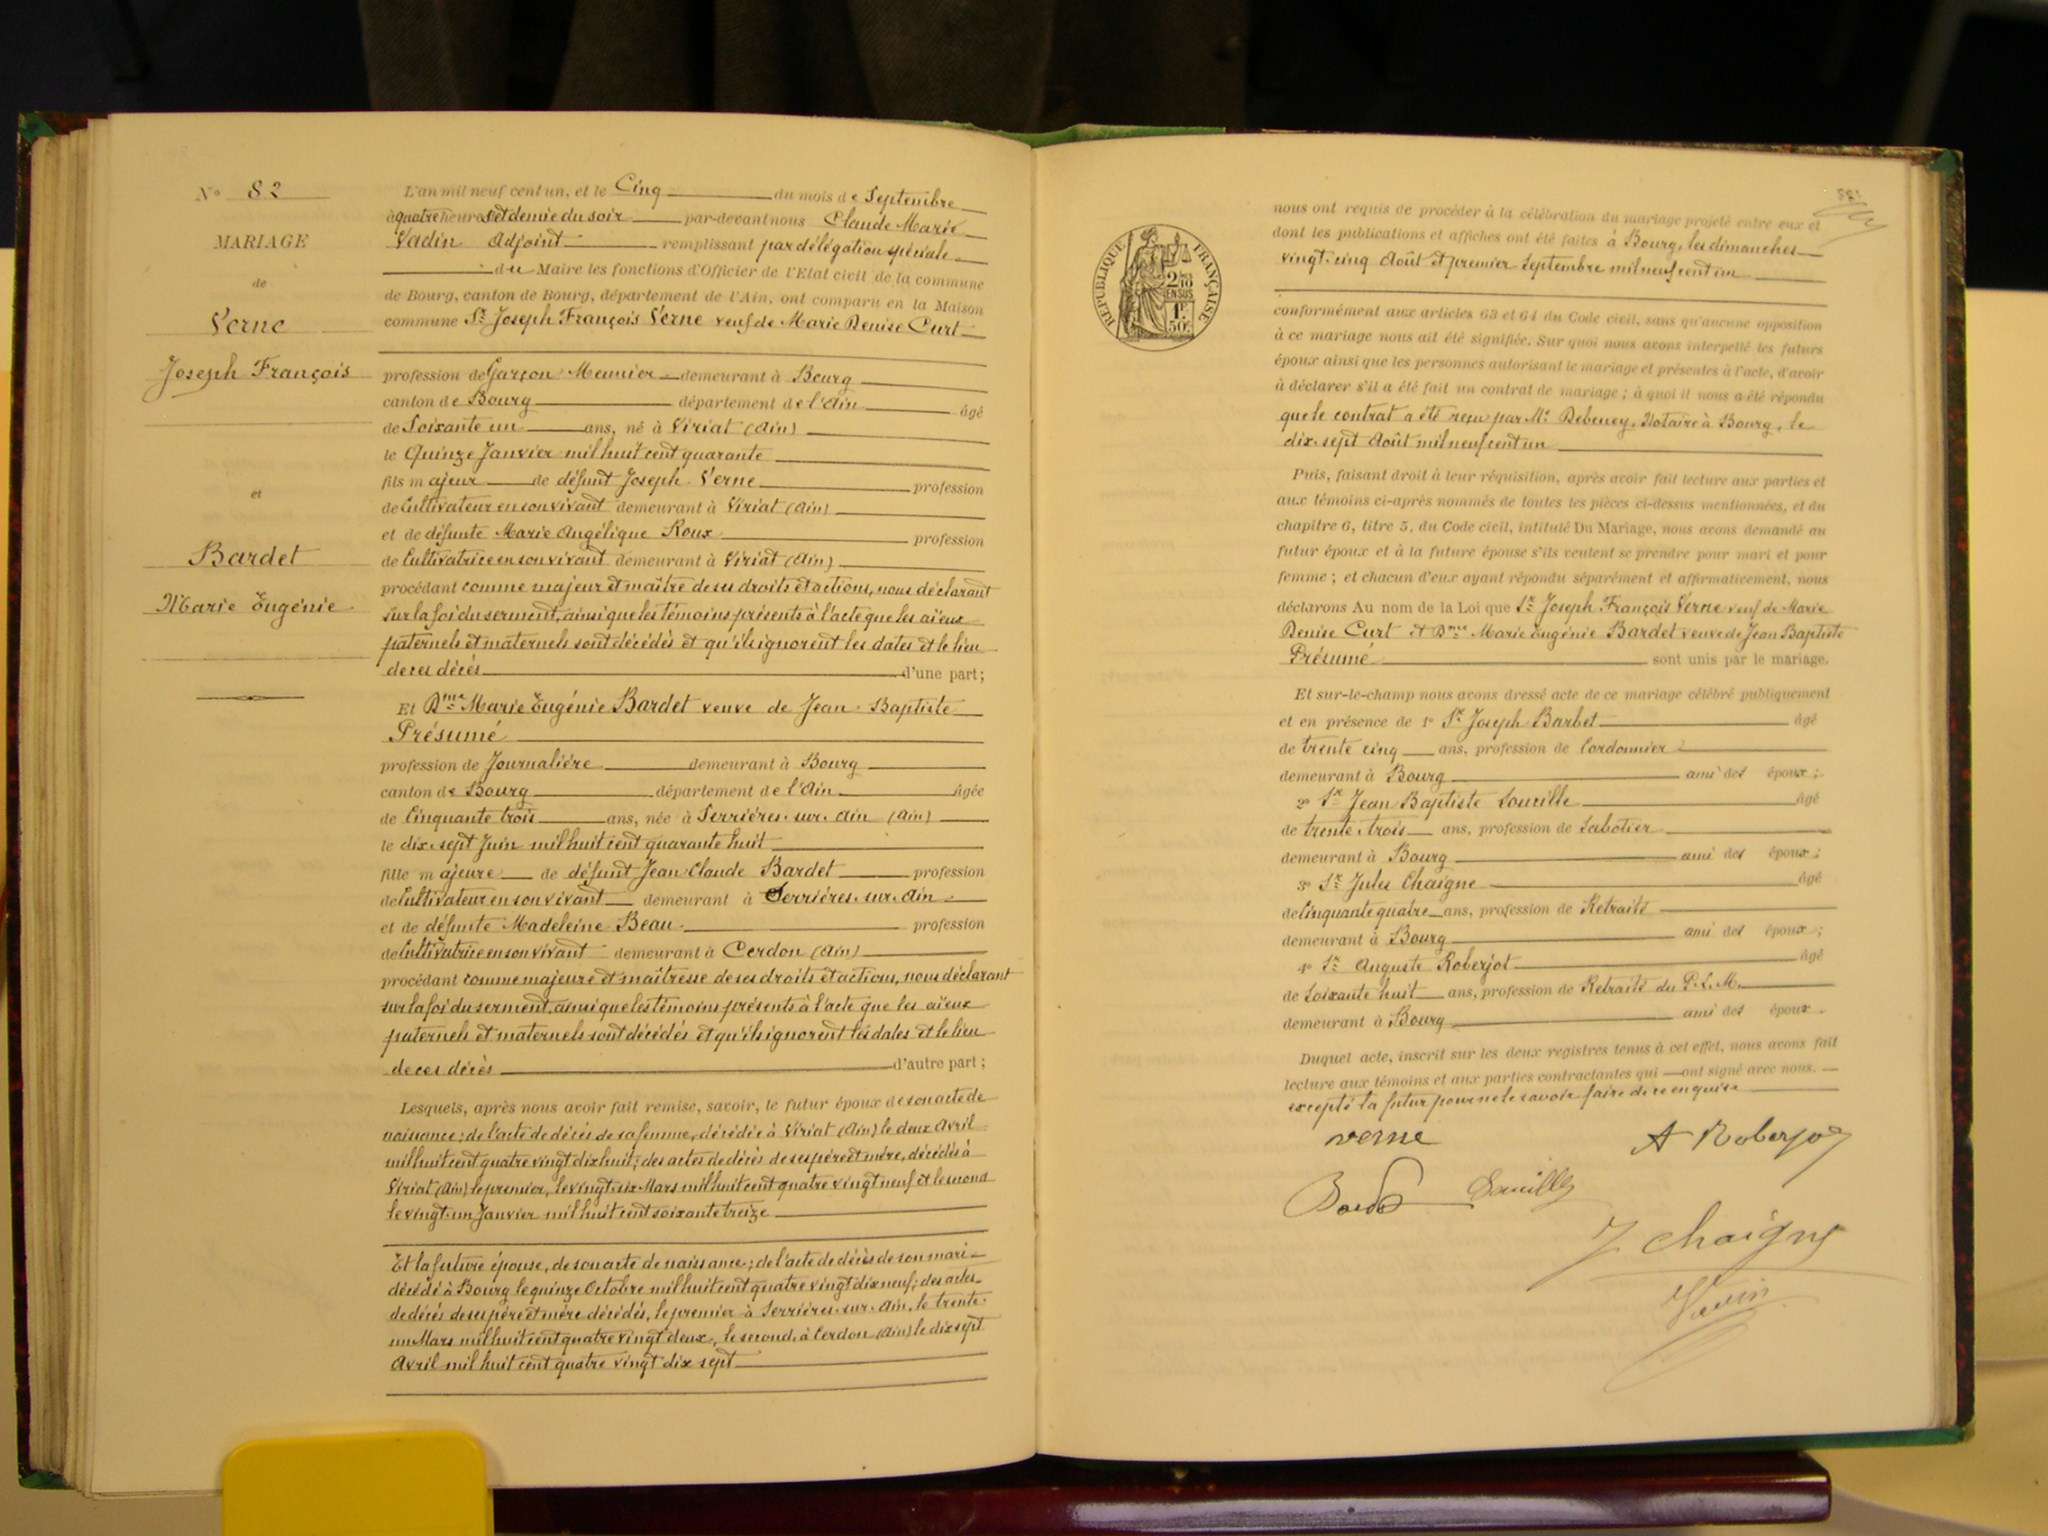 N° 82
MARIAGE
de
Verne
Joseph François
et
Bardet
Marie Eugénie
L'an mil neuf cent un, et le Cinq du mois de Septembre
à quatre heures et demie du soir par-devant nous Claude Marie
Vadin Adjoint remplissant par délégation spéciale
du Maire les fonctions d'Officier de l'Etat civil de la commune
de Bourg, canton de Bourg, département de l'Ain, ont comparu en la Maison
commune Sr Joseph François Verne veuf de Marie Denise Curt
profession de Garçon Meunier demeurant à Bourg
canton de Bourg département de l'Ain âgé
de Soixante un ans, né à Viriat (Ain)
le Quinze Janvier mil huit cent quarante
fils majeur de défunt Joseph Verne profession
de Cultivateur en son vivant demeurant à Viriat (Ain)
et de défunte Marie Angélique Roux profession
de Cultivatrice en son vivant demeurant à Viriat (Ain)
procédant comme majeur et maître de ses droits et actions, nous déclarant
sur la foi du serment, ainsi que les témoins présents à l'acte que les aïeux
paternels et maternels sont décédés et qu'ils ignorent les dates et le lieu
de ces décès d'une part;
Et Dme Marie Eugénie Bardet veuve de Jean Baptiste
Présumé
profession de Journalière demeurant à Bourg
canton de Bourg département de l'Ain âgée
de Cinquante trois ans, née à Serrières-sur-Ain (Ain)
le dix-sept Juin mil huit cent quarante huit
fille majeure de défunt Jean Claude Bardet profession
de Cultivateur en son vivant demeurant à Serrières-sur-Ain
et de défunte Madeleine Beau profession
de Cultivatrice en son vivant demeurant à Cerdon (Ain)
procédant comme majeure et maîtresse de ses droits et actions, nous déclarant
sur la foi du serment, ainsi que les témoins présents à l'acte que les aïeux
paternels et maternels sont décédés et qu'ils ignorent les dates et le lieu
de ces décès d'autre part;
Lesquels, après nous avoir fait remise, savoir, le futur époux de son acte de
naissance; de l'acte de décès de sa femme, décédée à Viriat (Ain) le deux Avril
mil huit cent quatre vingt dix huit; des actes de décès de ses père et mère, décédés à
Viriat (Ain) le premier, le vingt-six Mars mil huit cent quatre vingt neuf et le second
le vingt-un Janvier mil huit cent soixante treize
Et la future épouse, de son acte de naissance; de l'acte de décès de son mari
décédé à Bourg le quinze Octobre mil huit cent quatre vingt dix neuf; des actes
de décès de ses père et mère décédés, le premier à Serrières-sur-Ain, le trente-
un Mars mil huit cent quatre vingt deux, le second, à Cerdon (Ain) le dix sept
Avril mil huit cent quatre vingt dix sept
RÉPUBLIQUE FRANÇAISE
2/10 EN SUS
1F. 50c
nous ont requis de procéder à la célébration du mariage projeté entre eux et
dont les publications et affiches ont été faites à Bourg, les dimanches
vingt-cinq Août et premier Septembre mil neuf cent un
conformément aux articles 63 et 64 du Code civil, sans qu'aucune opposition
à ce mariage nous ait été signifiée. Sur quoi nous avons interpellé les futurs
époux ainsi que les personnes autorisant le mariage et présentes à l'acte, d'avoir
à déclarer s'il a été fait un contrat de mariage; à quoi il nous a été répondu
que le contrat a été reçu par Me Debeney, Notaire à Bourg, le
dix-sept Août mil neuf cent un
Puis, faisant droit à leur réquisition, après avoir fait lecture aux parties et
aux témoins ci-après nommés de toutes les pièces ci-dessus mentionnées, et du
chapitre 6, titre 5, du Code civil, intitulé Du Mariage, nous avons demandé au
futur époux et à la future épouse s'ils veulent se prendre pour mari et pour
femme; et chacun d'eux ayant répondu séparément et affirmativement, nous
déclarons Au nom de la Loi que Sr Joseph François Verne veuf de Marie
Denise Curt et Dme Marie Eugénie Bardet veuve de Jean Baptiste
Présumé sont unis par le mariage.
Et sur-le-champ nous avons dressé acte de ce mariage célébré publiquement
et en présence de 1° Sr Joseph Barbet âgé
de trente cinq ans, profession de Cordonnier
demeurant à Bourg ami des époux;
2° Sr Jean Baptiste Louville âgé
de trente-trois ans, profession de Sabotier
demeurant à Bourg ami des époux;
3° Sr Jules Chaigne âgé
de Cinquante quatre ans, profession de Retraité
demeurant à Bourg ami des époux;
4° Sr Auguste Roberjot âgé
de Soixante huit ans, profession de Retraité du P.L.M.
demeurant à Bourg ami des époux.
Duquel acte, inscrit sur les deux registres tenus à cet effet, nous avons fait
lecture aux témoins et aux parties contractantes qui ont signé avec nous.
excepté la future pour ne le savoir faire de ce enquise
verne
A Roberjot
J Chaigne